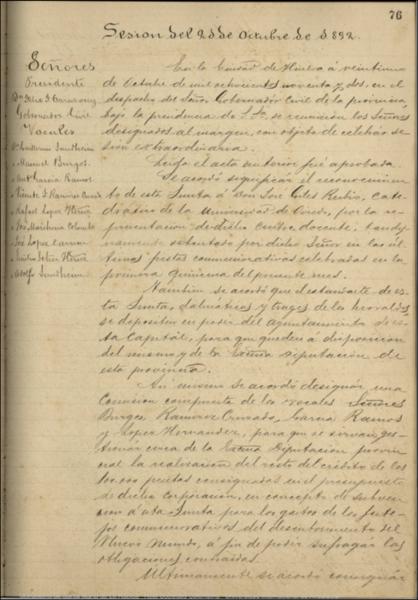 76
Sesion del 21 de Octubre de 1892.
Señores
Presidente
Gobernador Civil
Vocales
Manuel Burgos.
Garcia Ramos
Vicente
Rafael Lopez
José Marchena Colombo
José Lopez
Adolfo Sundheim
En la Ciudad de Huelva á veintiuno
de Octubre de mil ochocientos noventa y dos, en el
despacho del Señor Gobernador Civil de la provincia,
bajo la presidencia de S.S. se reunieron los Señores
designados al margen, con objeto de celebrar se
sión extraordinaria.
Leida el acta anterior fué aprobada.
Se acordó significar el reconocimien
to de esta Junta á Don José Giles Rubio, Cate
drático de la Universidad de Oviedo, por la re
presentacion de dicho Centro docente, tan dig
namente ostentada por dicho Señor en las úl
timas fiestas conmemorativas celebradas en la
primera quincena del presente mes.
Tambien se acordó que el estandarte de es
ta Junta, dalmáticas y trages de los heraldos
se depositen en poder del Ayuntamiento de es
ta Capital, para que queden á disposicion
del mismo y de la Excma Diputacion de
esta provincia.
Asi mismo se acordó designar una
Comision compuesta de los vocales Señores
Burgos, Ramirez Cruzado, Garcia Ramos
y Lopez Hernandez, para que se sirvan ges
tionar cerca de la Excma Diputacion provin
cial la realizacion del resto del crédito de las
100.000 pesetas consignadas en el presupuesto
de dicha Corporacion, en concepto de subven
cion á esta Junta para los gastos de los feste
jos conmemorativos del descubrimiento del
Nuevo Mundo, á fin de poder sufragar las
obligaciones contraidas.
Ultimamente se acordó consignar